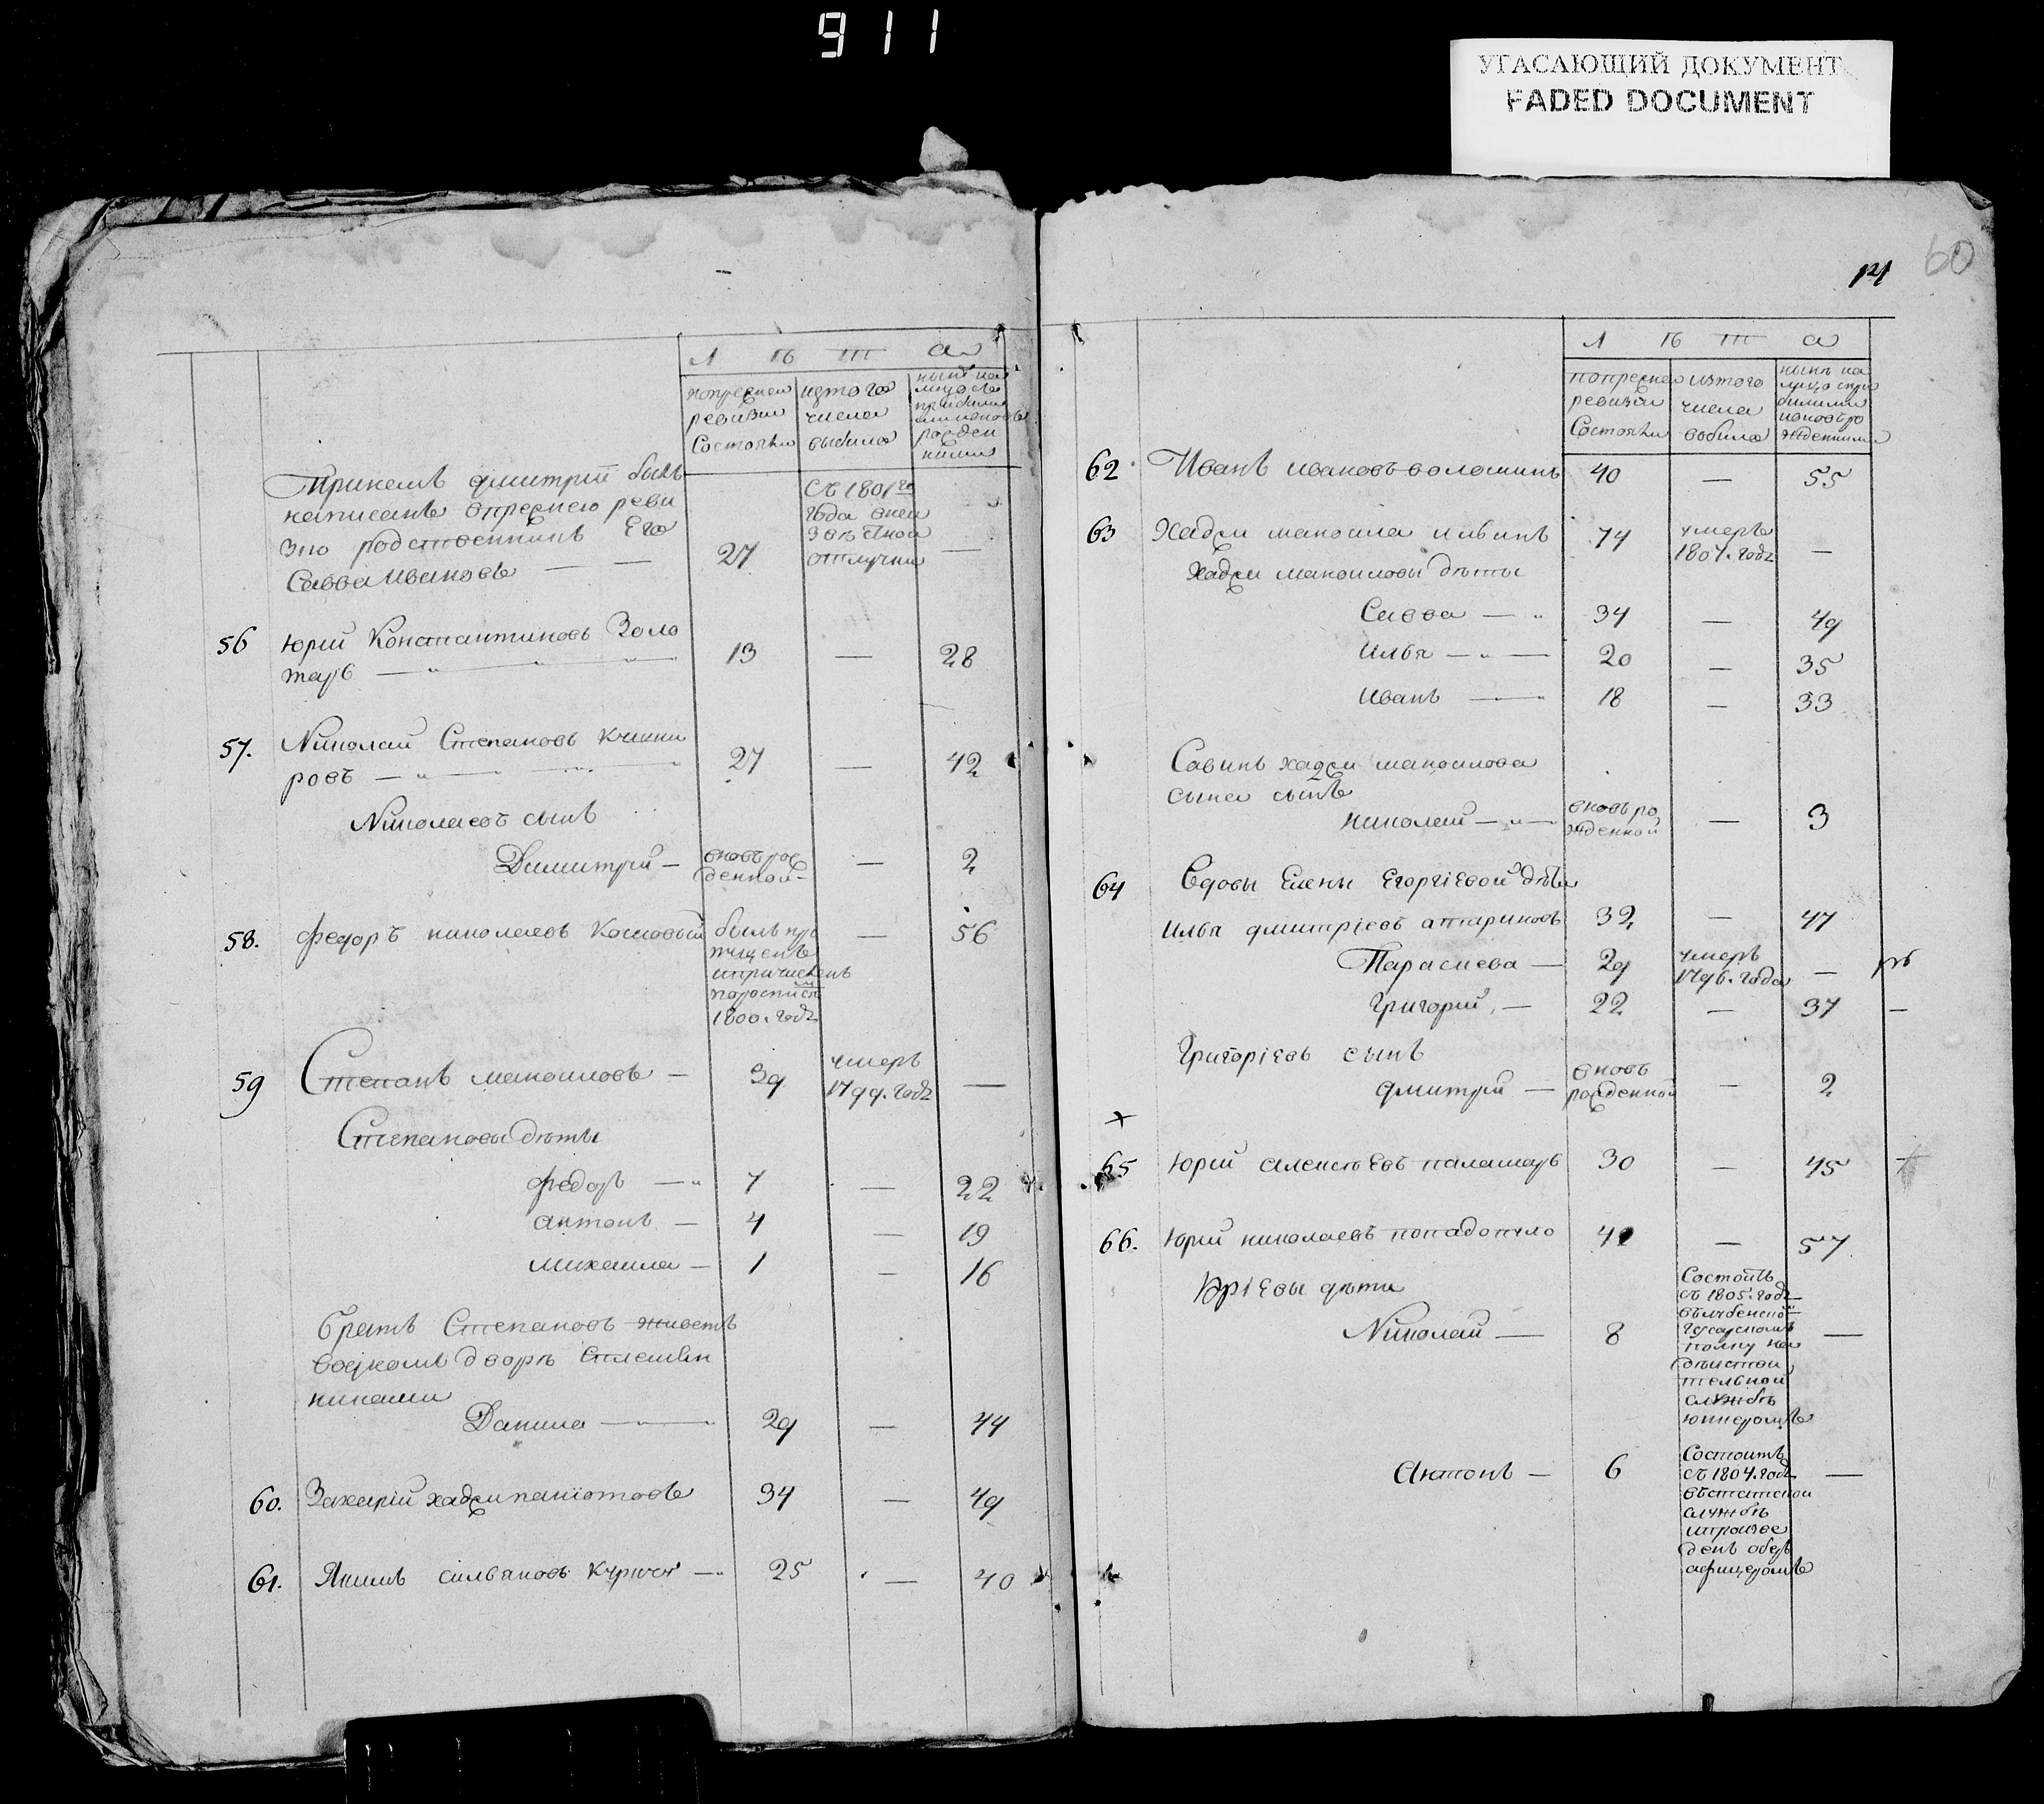 911
УГАСАЮЩИЙ ДОКУМЕНТ
FADED DOCUMENT
Л Ѣ Т А
попрежней ревизии состояли
изтого числа выбыло
ныне на лицо съ прибылыми и вновь рожденными
При немъ Дмитрий былъ
написанъ впрежнею реви
зию родственникъ Его
Савва Ивановъ — — 27 съ 1801го года внеизвѣстной отлучки —
56 Юрий Константиновъ Золо
тарь — 13 — 28
57. Николай Степановъ Кушни
ровъ — 27 — 42
Николаевъ сынъ
Димитрий — вновьрожденной — — 2
58. Федоръ николаевъ Кошовый былъ пропущенъ и причисленъ поросписи 1800. года — 56
59 Степанъ маноиловъ — 39 умеръ 1799. года —
Степановы дѣти
Федоръ — 7 — 22
антонъ — 4 — 19
михаила — 1 — 16
братъ Степановъ живетъ
водномъ дворѣ сплемян
никами
Данила — 29 — 44
60. Захарий хаджипаниотовъ 34 — 49
61. Якимъ сильяновъ — 25 — 40
14
60
Л Ѣ Т А
попрежней ревизии состояли
изтого числа выбыло
нынѣ на лицо съ прибылыми и новорожденными
62 Иванъ ивановъ волошинъ 40 — 55
63 Хаджи маноила ильинъ 74 умеръ 1807. года —
Хаджи маноиловы дѣти
Савва — 34 — 49
Илья — 20 — 35
Иванъ — 18 — 33
Савинъ хаджи маноилова
сына сынъ
николай — вновь рожденной — 3
64 Вдовы Елены Егоргіевой дѣти
илья дмитріевъ аттариновъ 32 — 47
Параскева — 29 умеръ 1796. года —
Григорий — 22 — 37 —
Григоріевъ сынъ
дмитрий — вновь рожденной — 2
+
65 Юрий алексѣевъ паламарь 30 — 45 +
66. Юрий николаевъ пападопуло 42 — 57
Юріевы дѣти
Николай — 8 Состоитъ съ 1805. года въ лубенскомъ гусарскомъ полку на дѣистви тельной службѣ юнкеромъ —
Антонъ — 6 Состоитъ съ 1804. года въ статской службѣ и произведенъ оберъ афицеромъ —